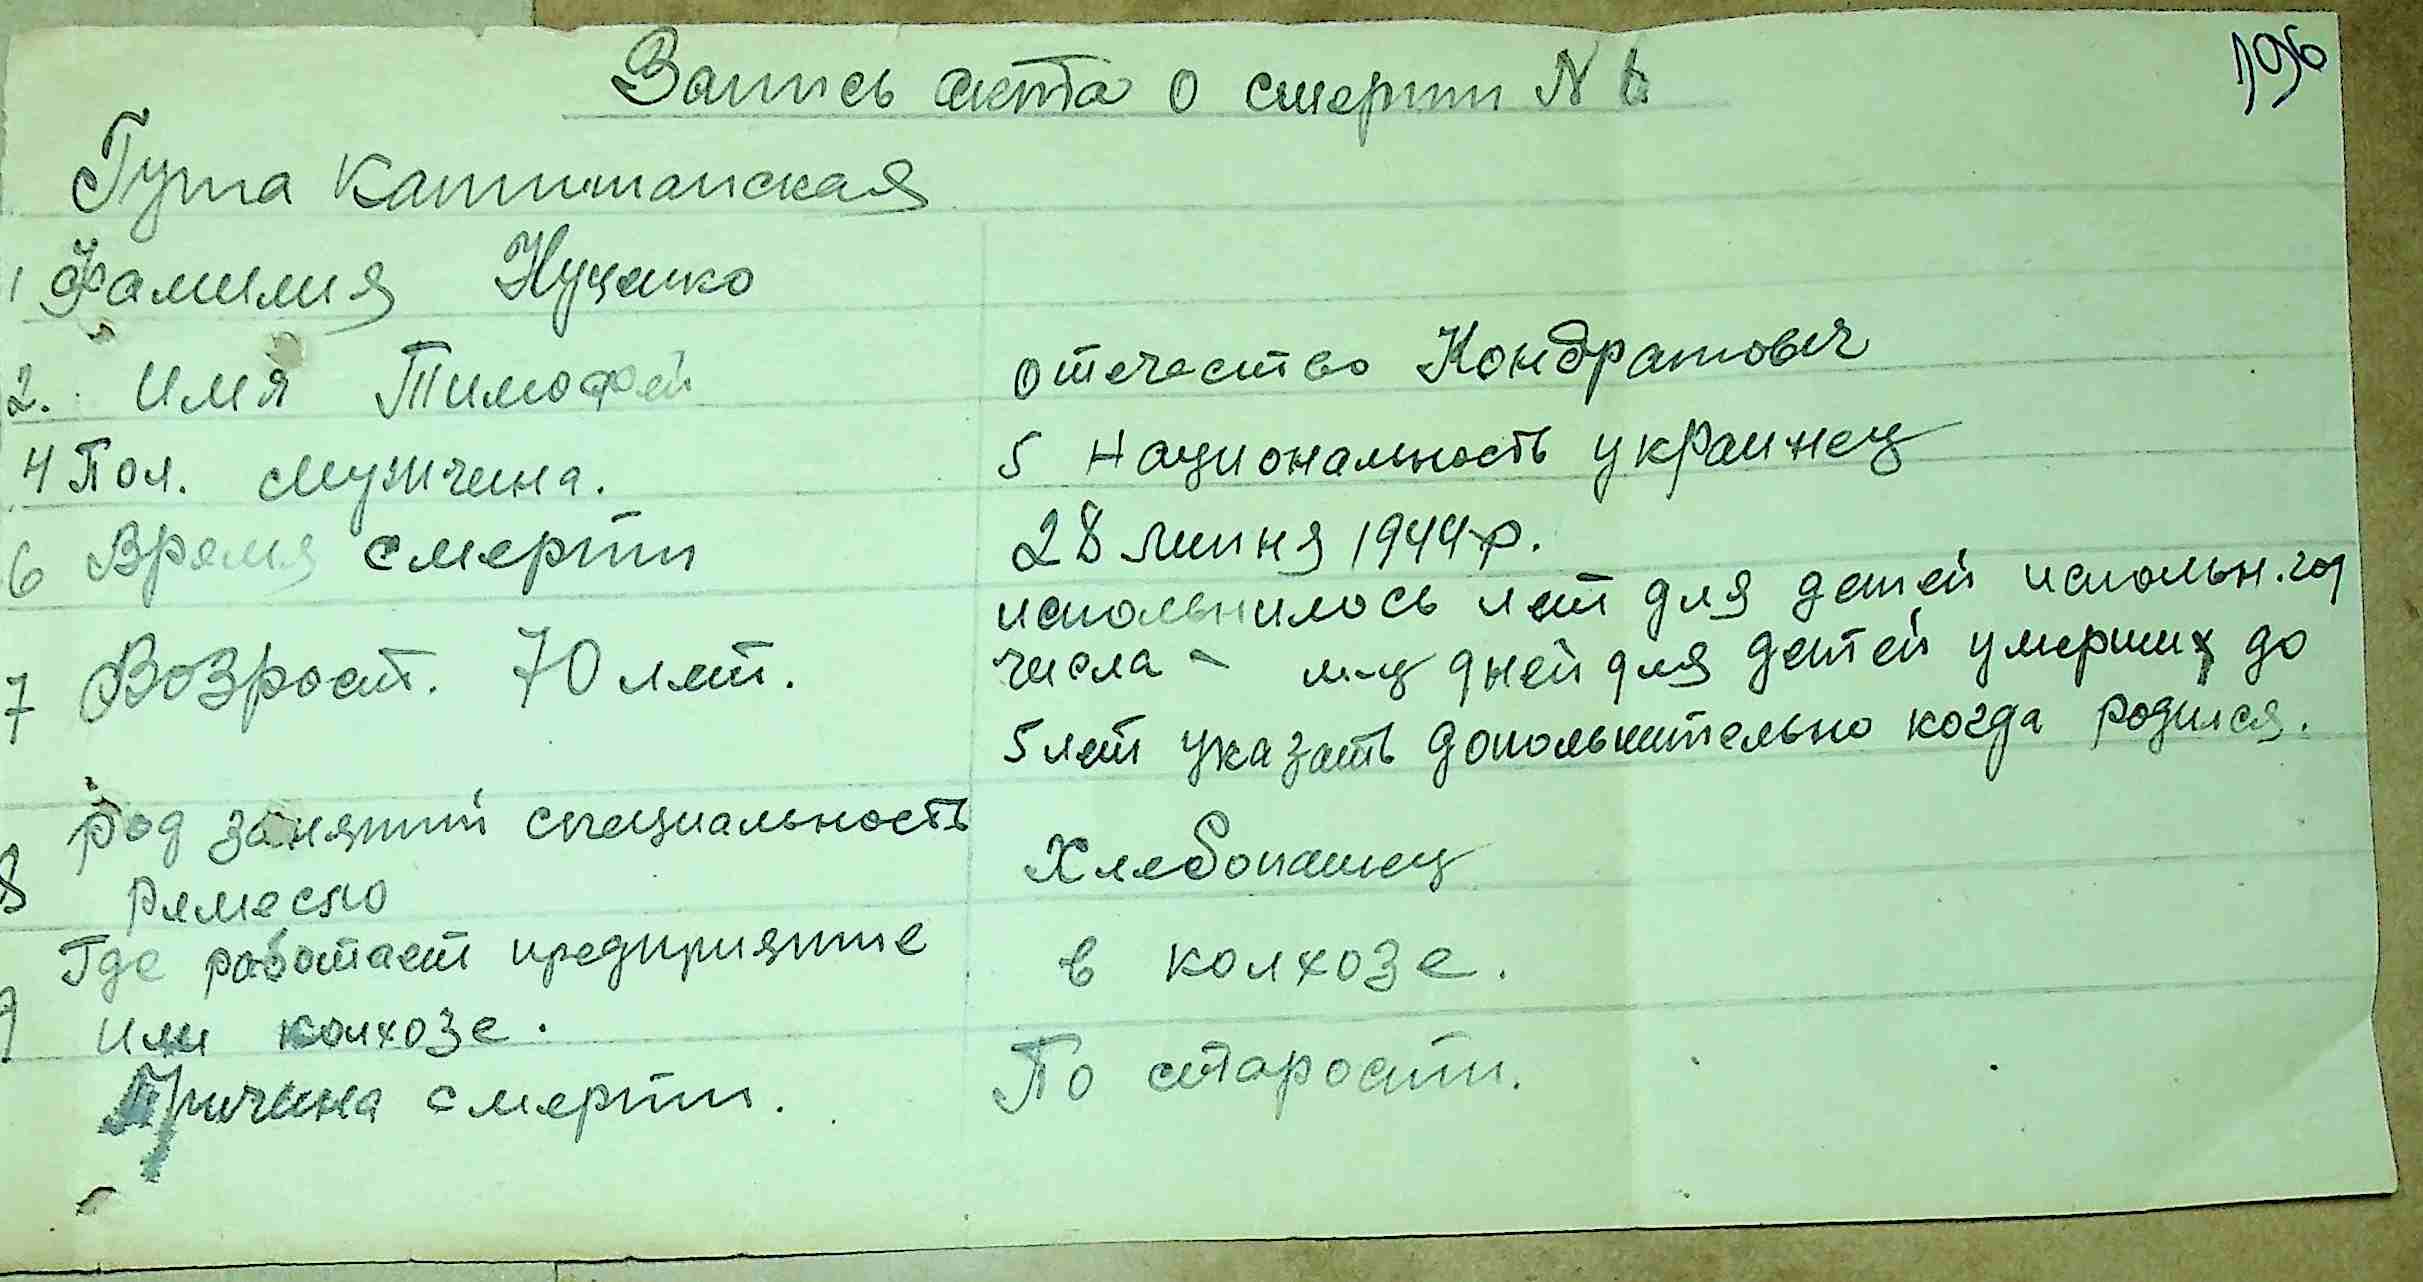 196
Запись акта о смерти N 6
Гута Катитанская
1 Фамилия Куценко
2. Имя Тимофей
отечество Кондратович
4 Пол. мужчина.
5 Национальность украинец
6 Время смерти
28 липня 1944 р.
7 Возрост. 70 лет.
испольнилось лет для детей испольн.
числа - дней для детей умерших до
5 лет указать допольнительно когда родился.
8 Род занятий специальность
ремесло
Хлебопашец
9 Где работает предприятие
или колхозе.
в колхозе.
Причина смерти.
По старости.